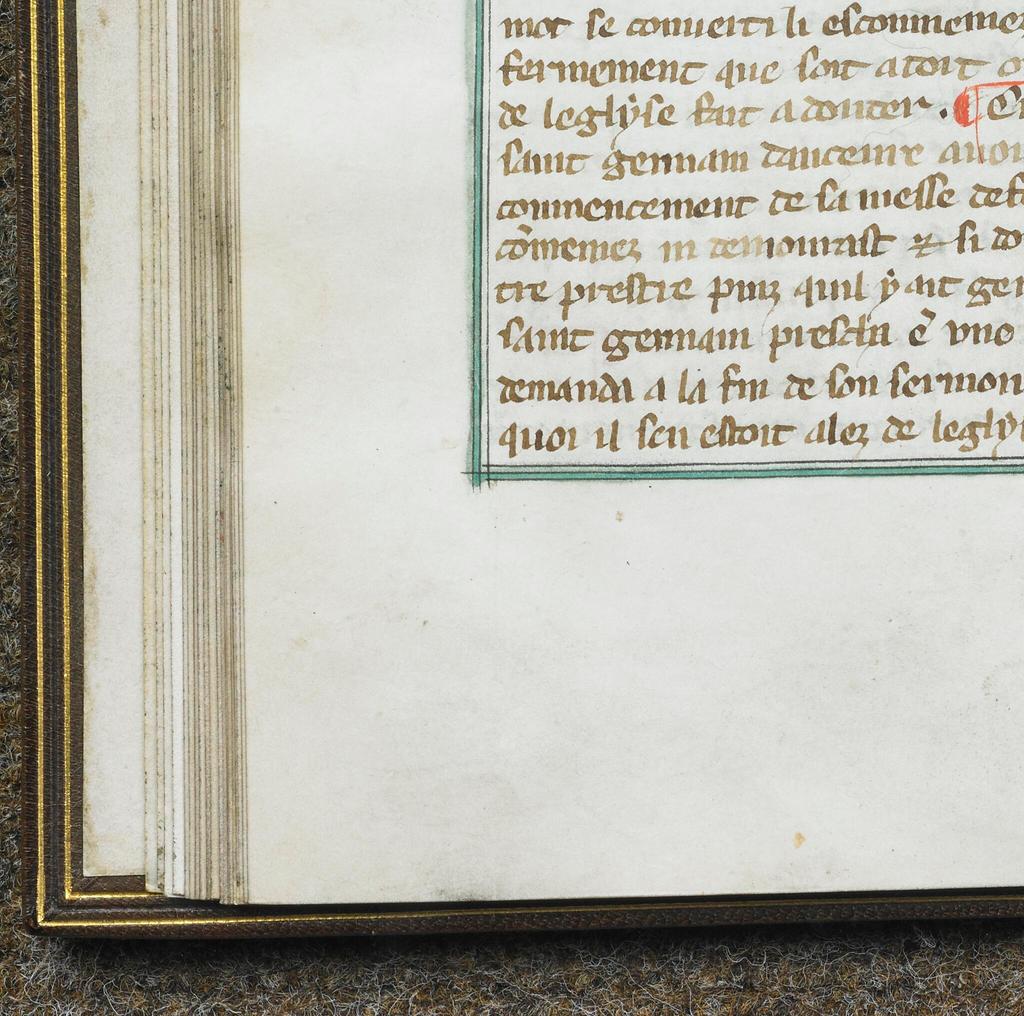 mot se conuerti li escõmeniez
fermement que soit a tort o
de leglyse fait a douter . ¶ E
saint germain daucerre auoi
commencement de sa messe def
cõmeniez ni demourast ⁊ si do
tre prestre puiz quil y ait ger
saint germain prescha ē vne
demanda a la fin de son sermon
quoi il sen estoit alez de legly